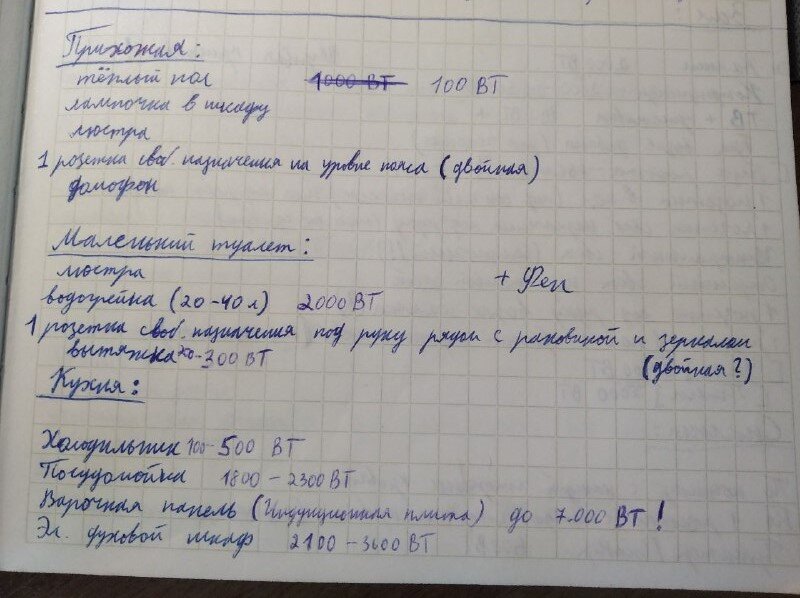 Прихожая:
тёплый пол 1000 ВТ 100 ВТ
лампочка в шкафу
люстра
1 розетка своб. назначения на уровне пояса (двойная)
домофон
Маленький туалет:
люстра
+ Фен
водогрейка (20-40 л) 2000 ВТ
1 розетка своб. назначения под руку рядом с раковиной и зеркалом
(двойная?)
вытяжка -300 ВТ
Кухня:
Холодильник 100-500 ВТ
Посудомойка 1800-2300 ВТ
Варочная панель (Индукционная плита) до 7.000 ВТ!
Эл. духовой шкаф 2100-3600 ВТ